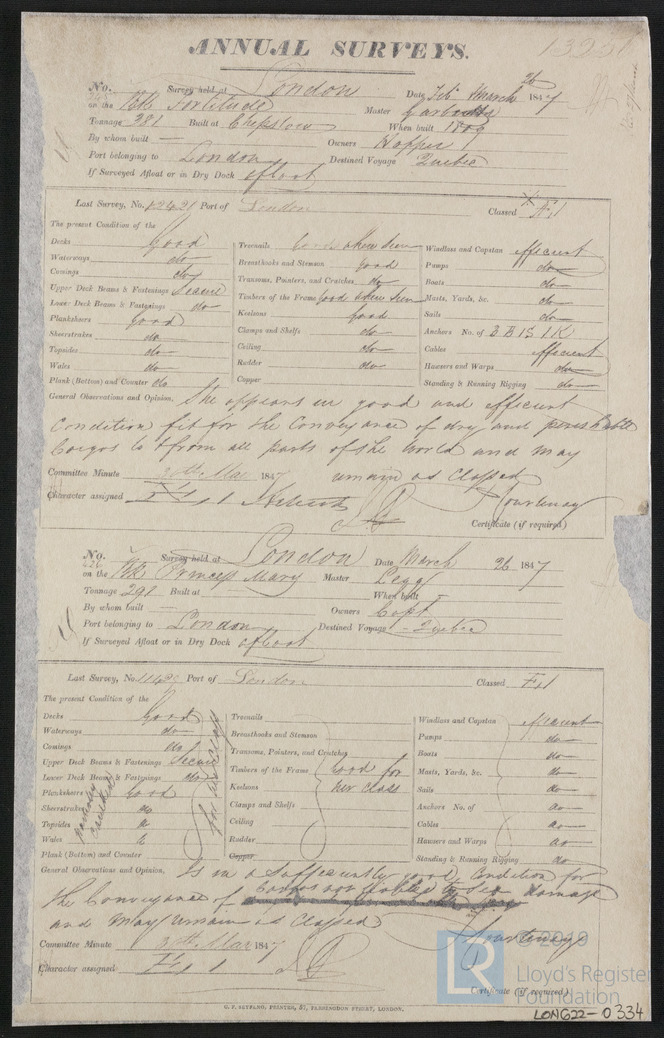 ANNUAL SURVEYS.
No. Survey held at London Date March 26 1847
on the Fortitude Master
Tonnage 281 Built at Chepstow When built
By whom built — Owners Hopper
Port belonging to London Destined Voyage Quebec
If Surveyed Afloat or in Dry Dock afloat
Last Survey, No. Port of London Classed
The present Condition of the
Decks Good
Waterways do
Comings do
Upper Deck Beams & Fastenings Secure
Lower Deck Beams & Fastenings do
Plansheers good
Sheerstrakes do
Topsides do
Wales do
Plank (Bottom) and Counter do
Treenails Good when seen
Breasthooks and Stemson good
Transoms, Pointers, and Crutches do
Timbers of the Frame good when seen
Keelsons good
Clamps and Shelfs do
Ceiling do
Rudder do
Copper
Windlass and Capstan efficient
Pumps do
Boats do
Masts, Yards, &c. do
Sails do
Anchors No. of 3 B 1 S 1 K
Cables efficient
Hawsers and Warps do
Standing & Running Rigging do
General Observations and Opinion, She appears in good and efficient
Condition fit for the Conveyance of dry and perishable
Cargos to & from all parts of the World and may
remain as Classed
Committee Minute 30th Mar 1847
Character assigned
Courtenay
Certificate (if required)
No. 626 Survey held at London Date March 26 1847
on the Bk Princess Mary Master Legg
Tonnage 291 Built at When built
By whom built — Owners Capt
Port belonging to London Destined Voyage - Quebec
If Surveyed Afloat or in Dry Dock afloat
Last Survey, No. Port of London Classed Æ 1
The present Condition of the
Decks Good
Waterways do
Comings do
Upper Deck Beams & Fastenings Secure
Lower Deck Beams & Fastenings do
Plansheers Good
Sheerstrakes do
Topsides do
Wales do
Plank (Bottom) and Counter
for her class
Treenails
Breasthooks and Stemson
Transoms, Pointers, and Crutches
Timbers of the Frame Good for
Keelsons her class
Clamps and Shelfs
Ceiling
Rudder
Copper
Windlass and Capstan efficient
Pumps do
Boats do
Masts, Yards, &c. do
Sails do
Anchors No. of do
Cables do
Hawsers and Warps do
Standing & Running Rigging do
General Observations and Opinion, Is in a sufficiently good Condition for
the Conveyance of Cargos not liable to Sea damage
and may remain as Classed
Courtenay
Committee Minute 30th Mar 1847
Character assigned Æ 1
Certificate (if required)
G. F. SEYFANG, PRINTER, 57, FARRINGDON STREET, LONDON.
LR
© 2019
Lloyd's Register
Foundation
LON622-0334